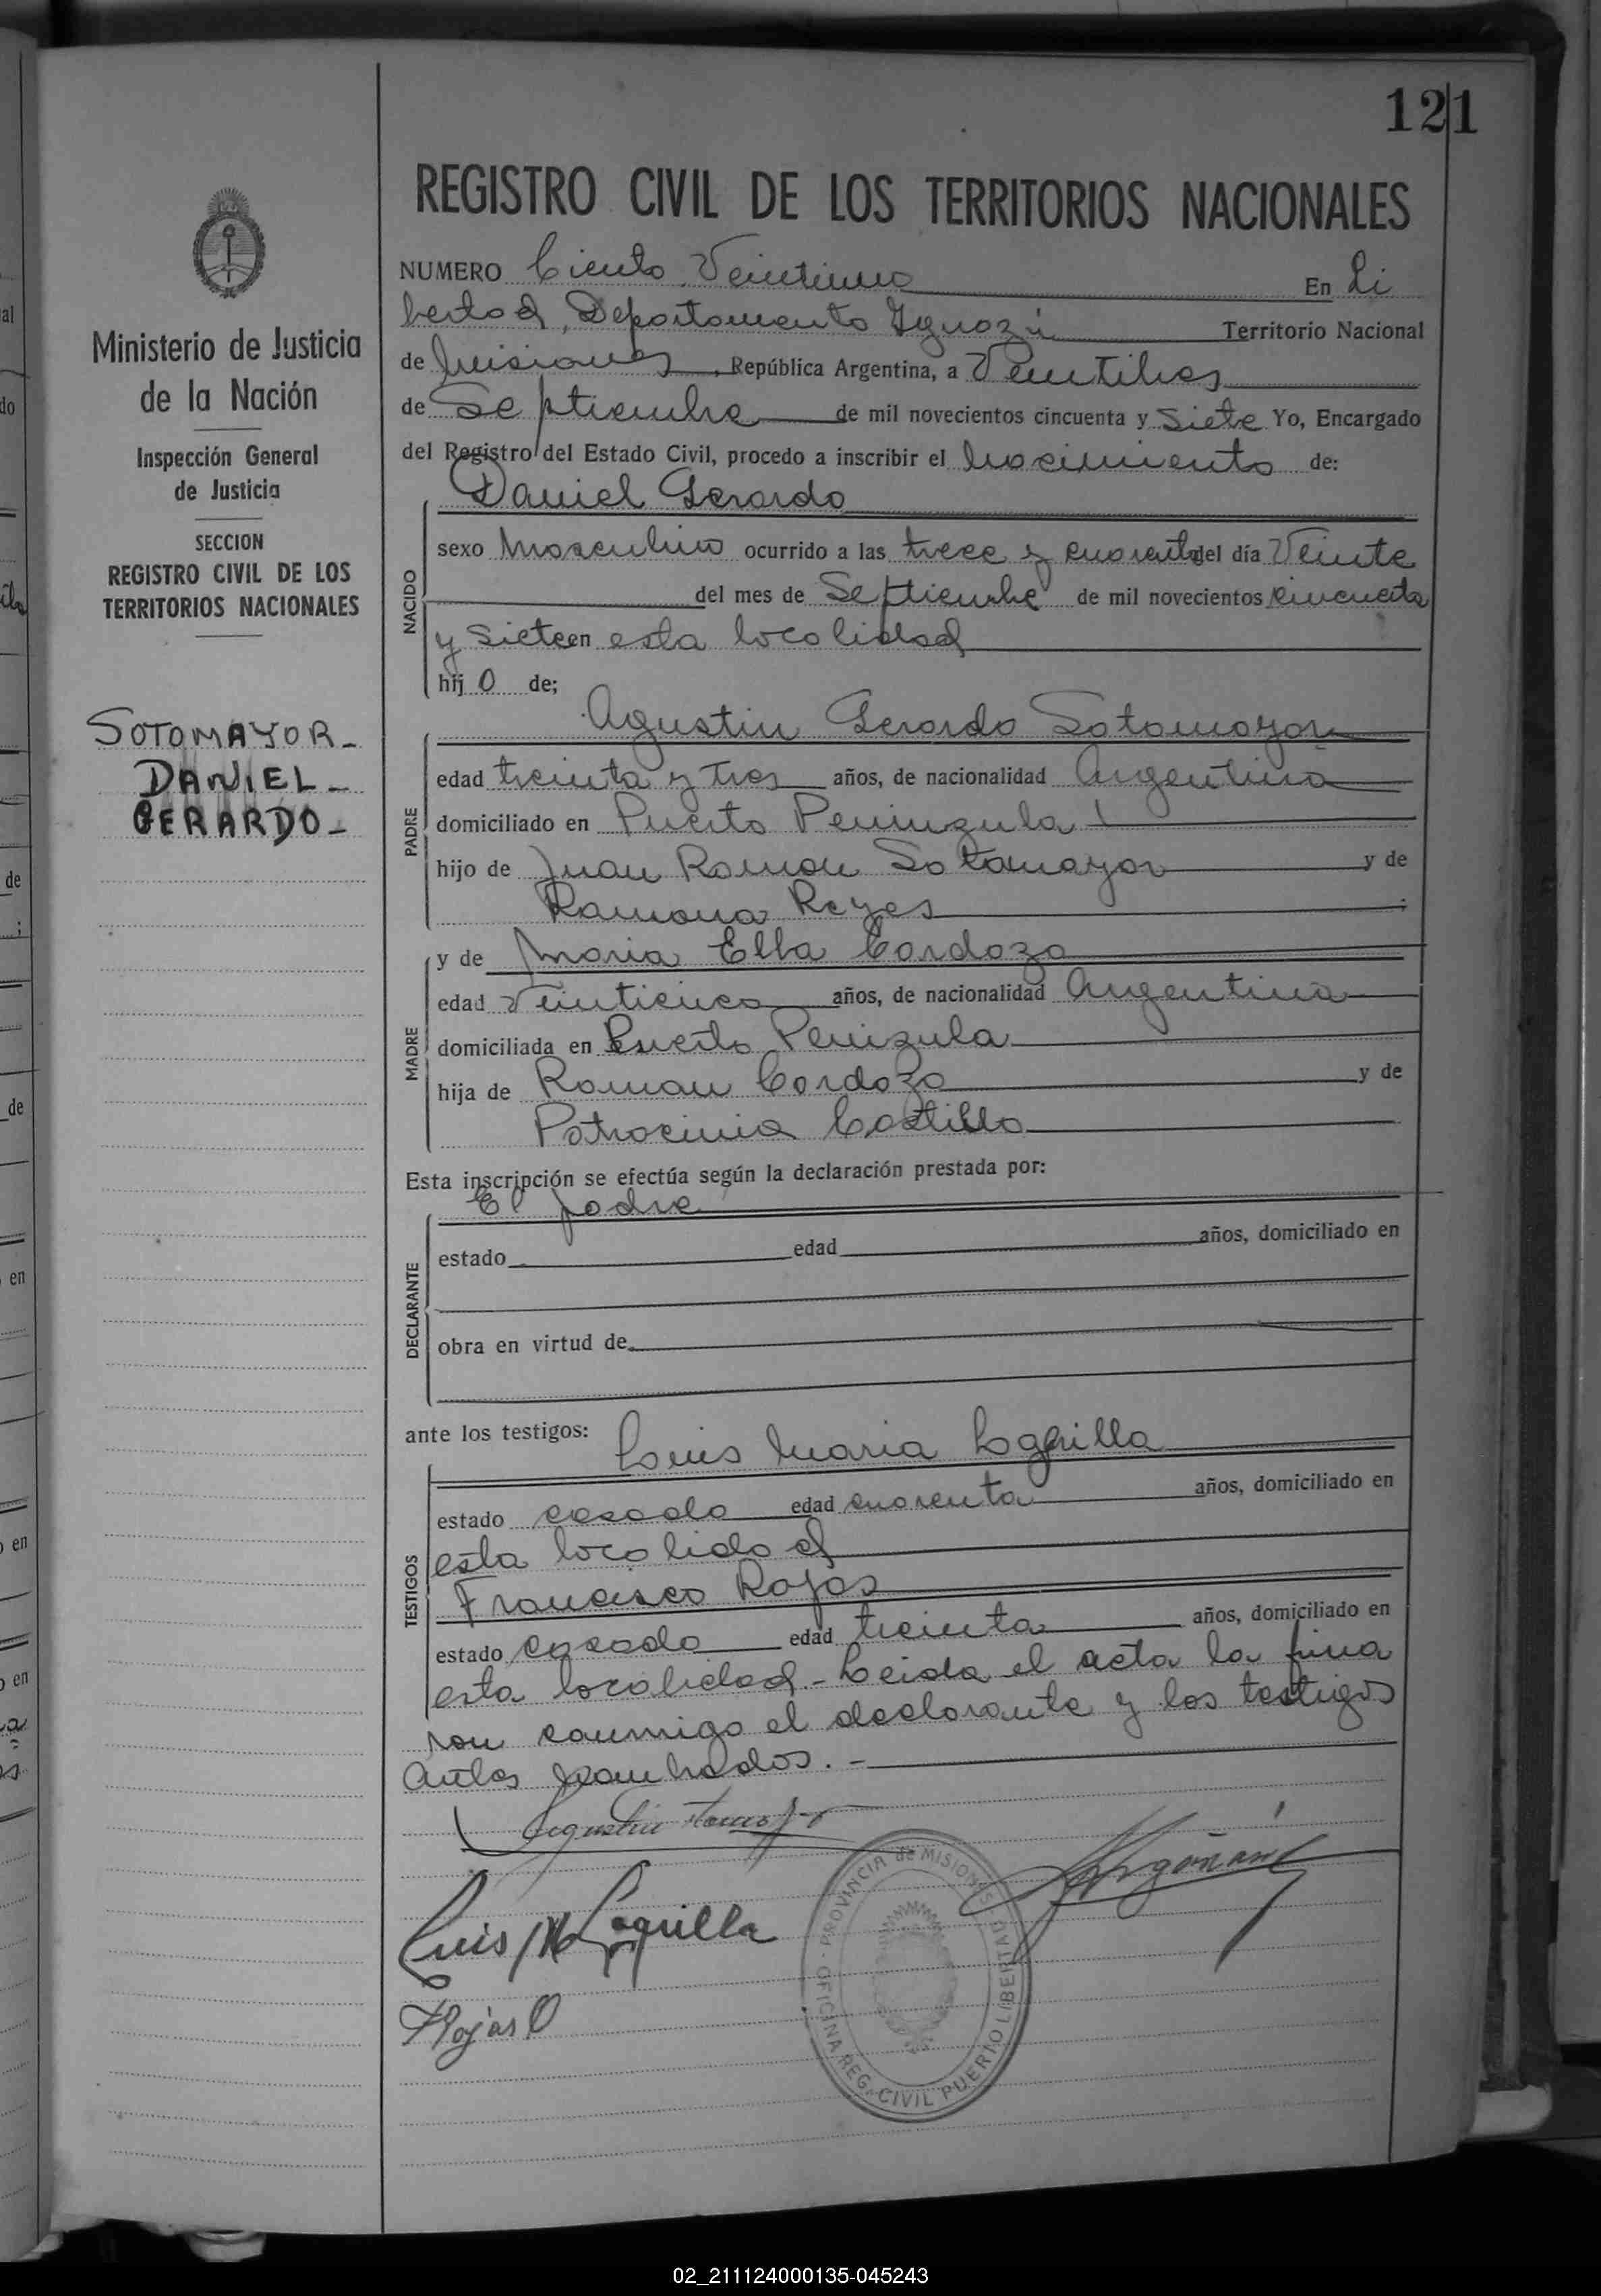 121
REGISTRO CIVIL DE LOS TERRITORIOS NACIONALES
NUMERO Ciento Veintiuno En Li
bertad, Departamento Iguazú Territorio Nacional
de Misiones, República Argentina, a Veintitres
de Septiembre de mil novecientos cincuenta y Siete Yo, Encargado
del Registro del Estado Civil, procedo a inscribir el Nacimiento de:
Daniel Gerardo
NACIDO
sexo Masculino ocurrido a las trece y cuarenta del día Veinte
del mes de Septiembre de mil novecientos cincuenta
y siete en esta localidad
hij o de;
PADRE
Agustin Gerardo Sotomayor
edad treinta y tres años, de nacionalidad Argentina
domiciliado en Puerto Peninzula
hijo de Juan Ramon Sotomayor y de
Ramona Reyes ;
MADRE
y de Maria Elba Cardozo
edad Veinticinco años, de nacionalidad Argentina
domiciliada en Puerto Penizula
hija de Roman Cardozo y de
Patrocinia Castillo
Esta inscripción se efectúa según la declaración prestada por:
DECLARANTE
El padre
estado edad años, domiciliado en
obra en virtud de
ante los testigos:
TESTIGOS
Luis Maria Lagrilla
estado casado edad cuarenta años, domiciliado en
esta localidad
Francisco Rojas
estado casado edad treinta años, domiciliado en
esta localidad - Leida el acta la firma
ron conmigo el declarante y los testigos
antes nombrados. -
Luis M
Rojas
PROVINCIA de MISIONES
OFICINA REG. CIVIL PUERTO LIBERTAD
Ministerio de Justicia
de la Nación
Inspección General
de Justicia
SECCION
REGISTRO CIVIL DE LOS
TERRITORIOS NACIONALES
SOTOMAYOR -
DANIEL -
GERARDO -
02_211124000135-045243